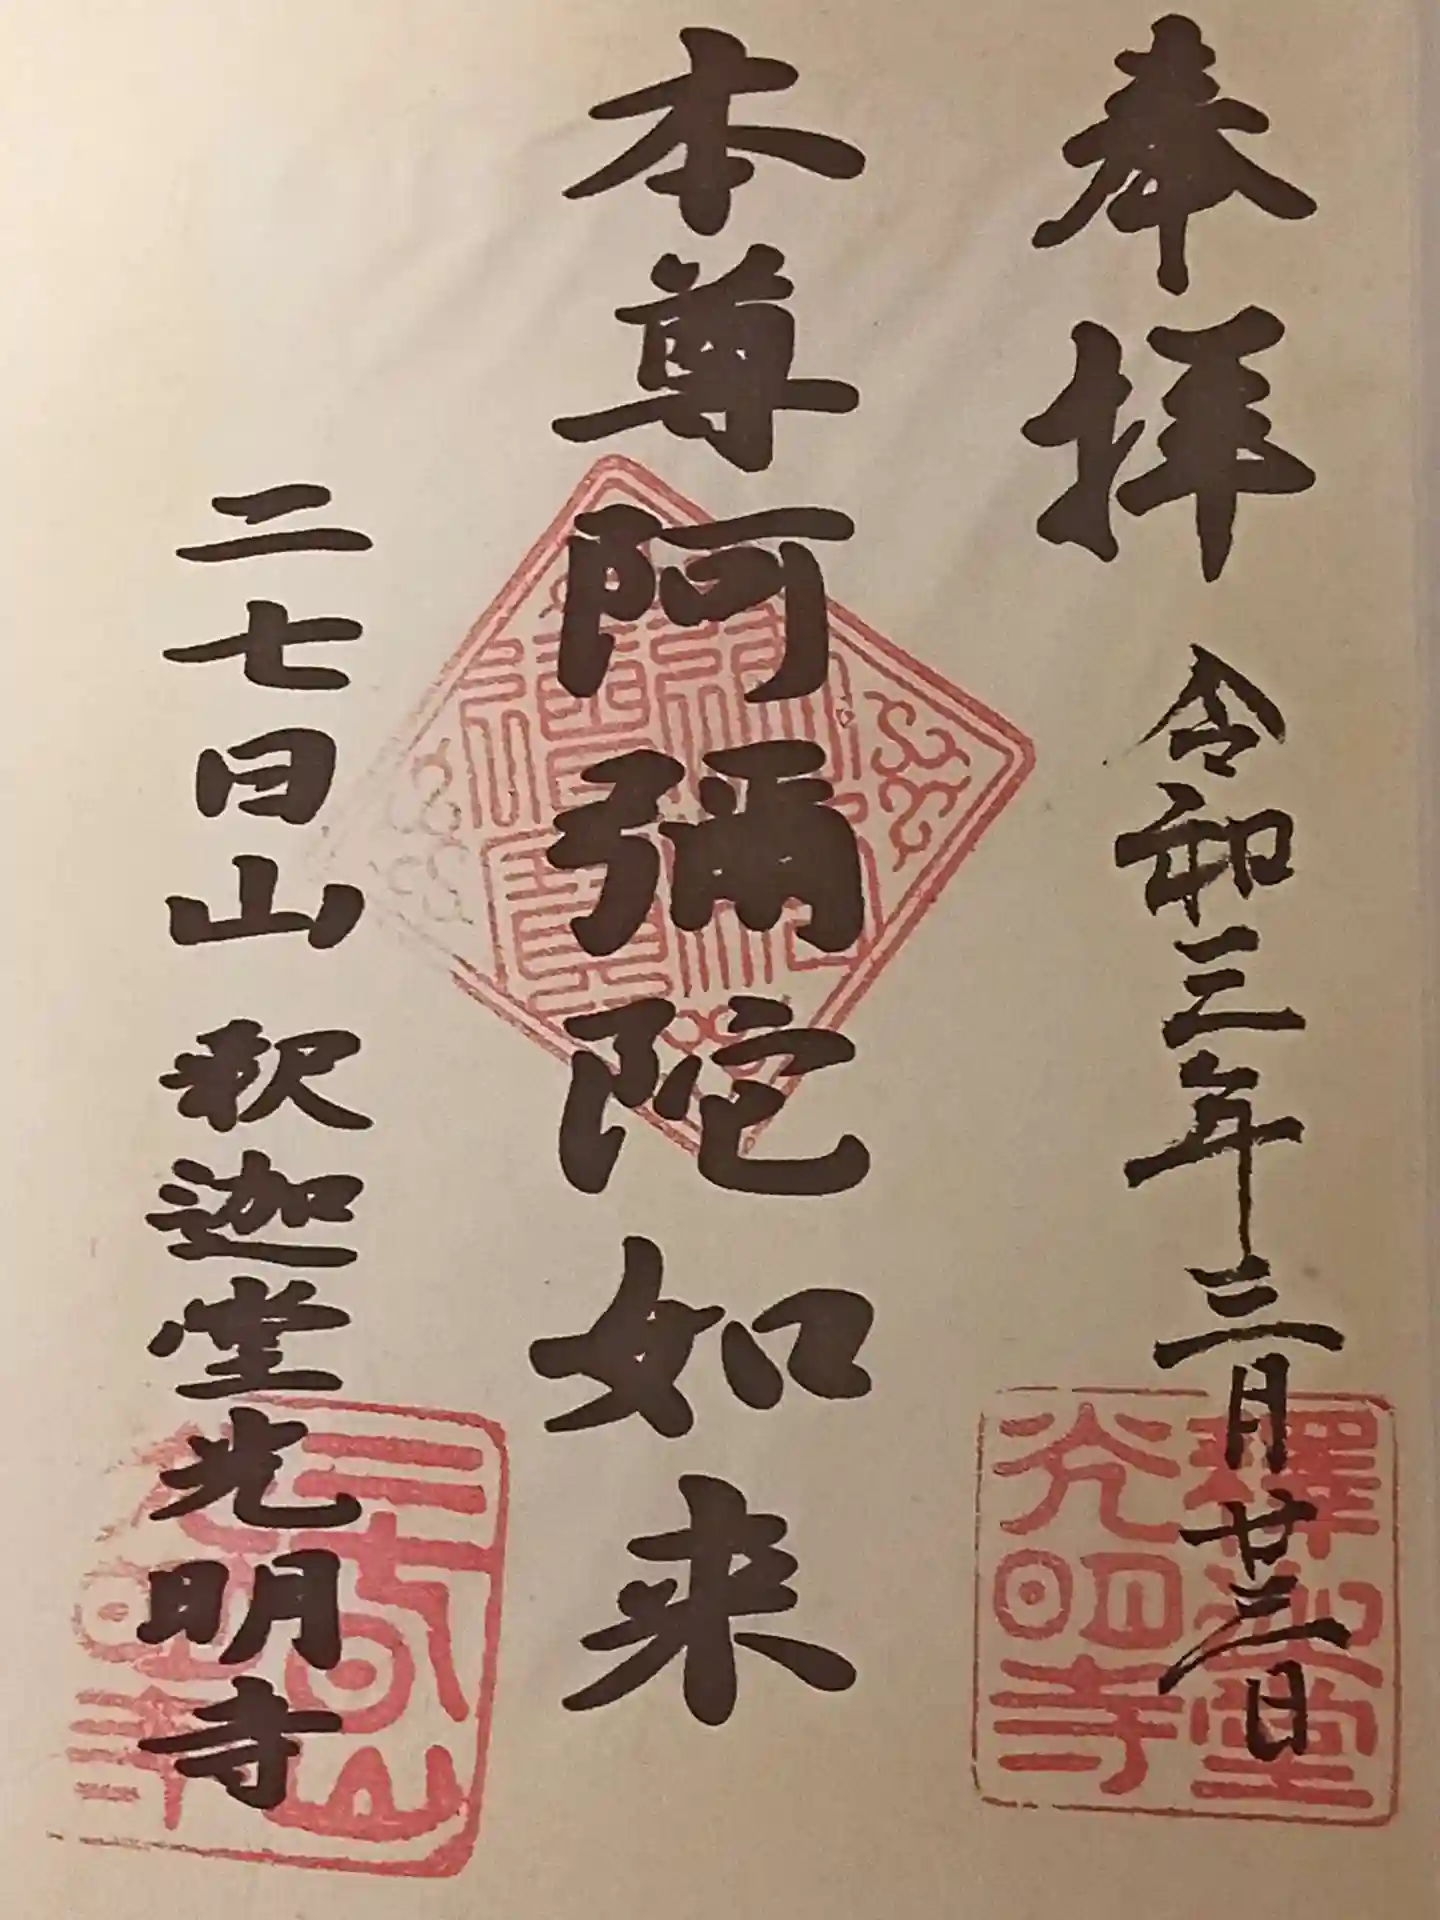 奉拝 令和三年三月廿三日
本尊阿彌陀如来
二七日山 釈迦堂光明寺
釋迦堂
光明寺